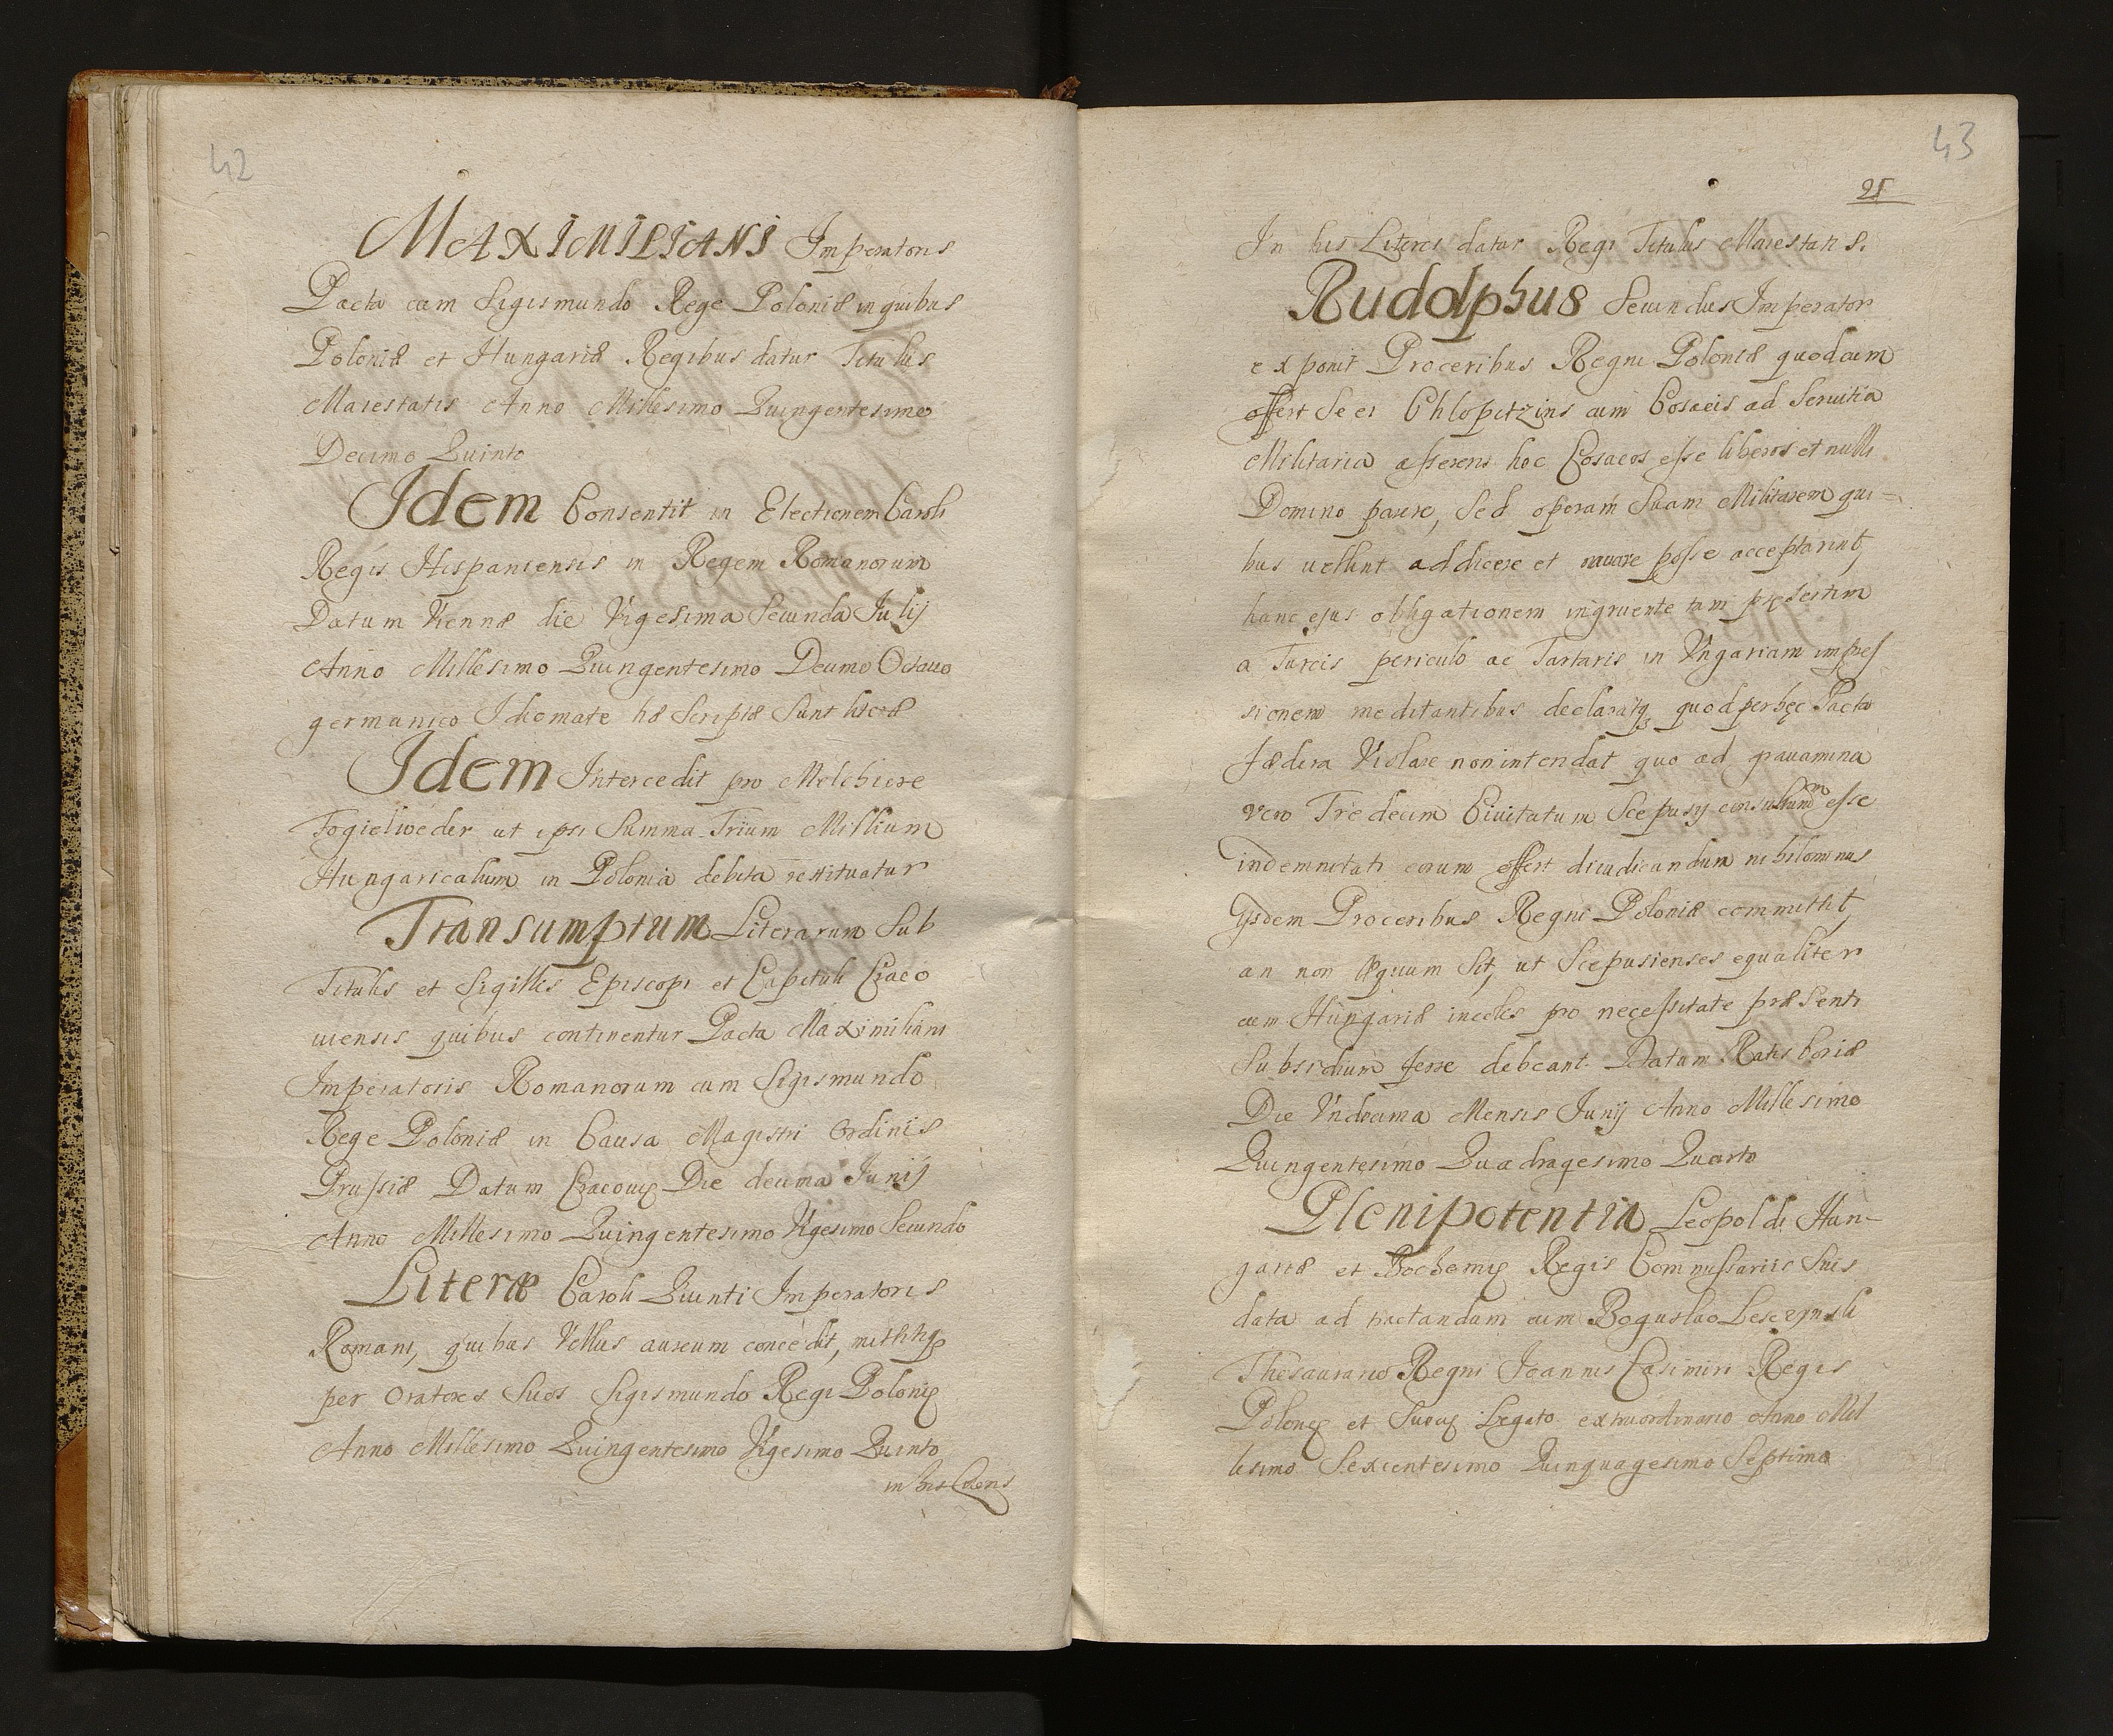 42
MAXIMILIANI Imperatoris
Pacta cum Sigismundo Rege Poloniæ in quibus
Poloniæ et Hungariæ Regibus datur Titulus
Maiestatis Anno Millesimo Quingentesimo
Decimo Quinto
Idem Consentit in Electionem Caroli
Regis Hispaniensis in Regem Romanorum
Datum Viennæ die Vigesima Secunda Julij
Anno Millesimo Quingentesimo Decimo Octauo
germanico Idiomate hæ Scriptæ Sunt literæ
Idem Intercedit pro Melchiore
Fogielweder ut ipsi Summa Trium Millium
Hungaricalium in Polonia debita restituatur
Transumptum Literarum Sub
Titulis et Sigillis Episcopi et Capituli Craco
uiensis quibus continentur Pacta Maximiliani
Imperatoris Romanorum cum Sigismundo
Rege Poloniæ in Causa Magistri Ordinis
Prussiæ Datum Cracouię Die decima Junij
Anno Millesimo Quingentesimo Vigesimo Secundo
Literæ Caroli Quinti Imperatoris
Romani, quibus Vellus aureum concedit, mittitq3
per Oratores Suos Sigismundo Regi Polonię
Anno Millesimo Quingentesimo Vigesimo Quinto
in his Literis
43
21
In his Literis datur Regi Titulus Maiestatis.
Rudolphus Secundus Imperator
exponit Proceribus Regni Poloniæ quod cum
offert Se ei Chlopitzins cum Cosacis ad Seruitia
Militaria asserens hoc Cosacos esse liberos et nulli
Domino parere, Sed operam Suam Militarem qui=
bus uellint addicere et nauare posse acceptarint,
hanc ejus obligationem ingruente tum pręsertim
a Turcis periculo ac Tartaris in Vngariam impres
sionem meditantibus declaratq3 quod per hęc Pacta
fædera Violare non intendat quo ad grauamina
vero Tredecim Ciuitatum Scepusij consultum esse
indemnitati earum offert diiudicandum nihilominus
ijsdem Proceribus Regni Poloniæ committit,
an non Æquum Sit, ut Scepusienses equaliter
cum Hungariæ incolis pro necessitate præsenti
Subsidium ferre debeant. Datum Ratisboniæ
Die Vndecima Mensis Junij Anno Millesimo
Quingentesimo Quadragesimo Quarto
Plenipotentia Leopoldi Hun-
gariæ et Bochemię Regis Commissariis Suis
data ad tractandum cum Boguslao Lesczynski
Thesaurario Regni Joannis Casimiri Regis
Polonię et Suecię Legato extraordinario Anno Mil
lesimo Sexcentesimo Quinquagesimo Septimo